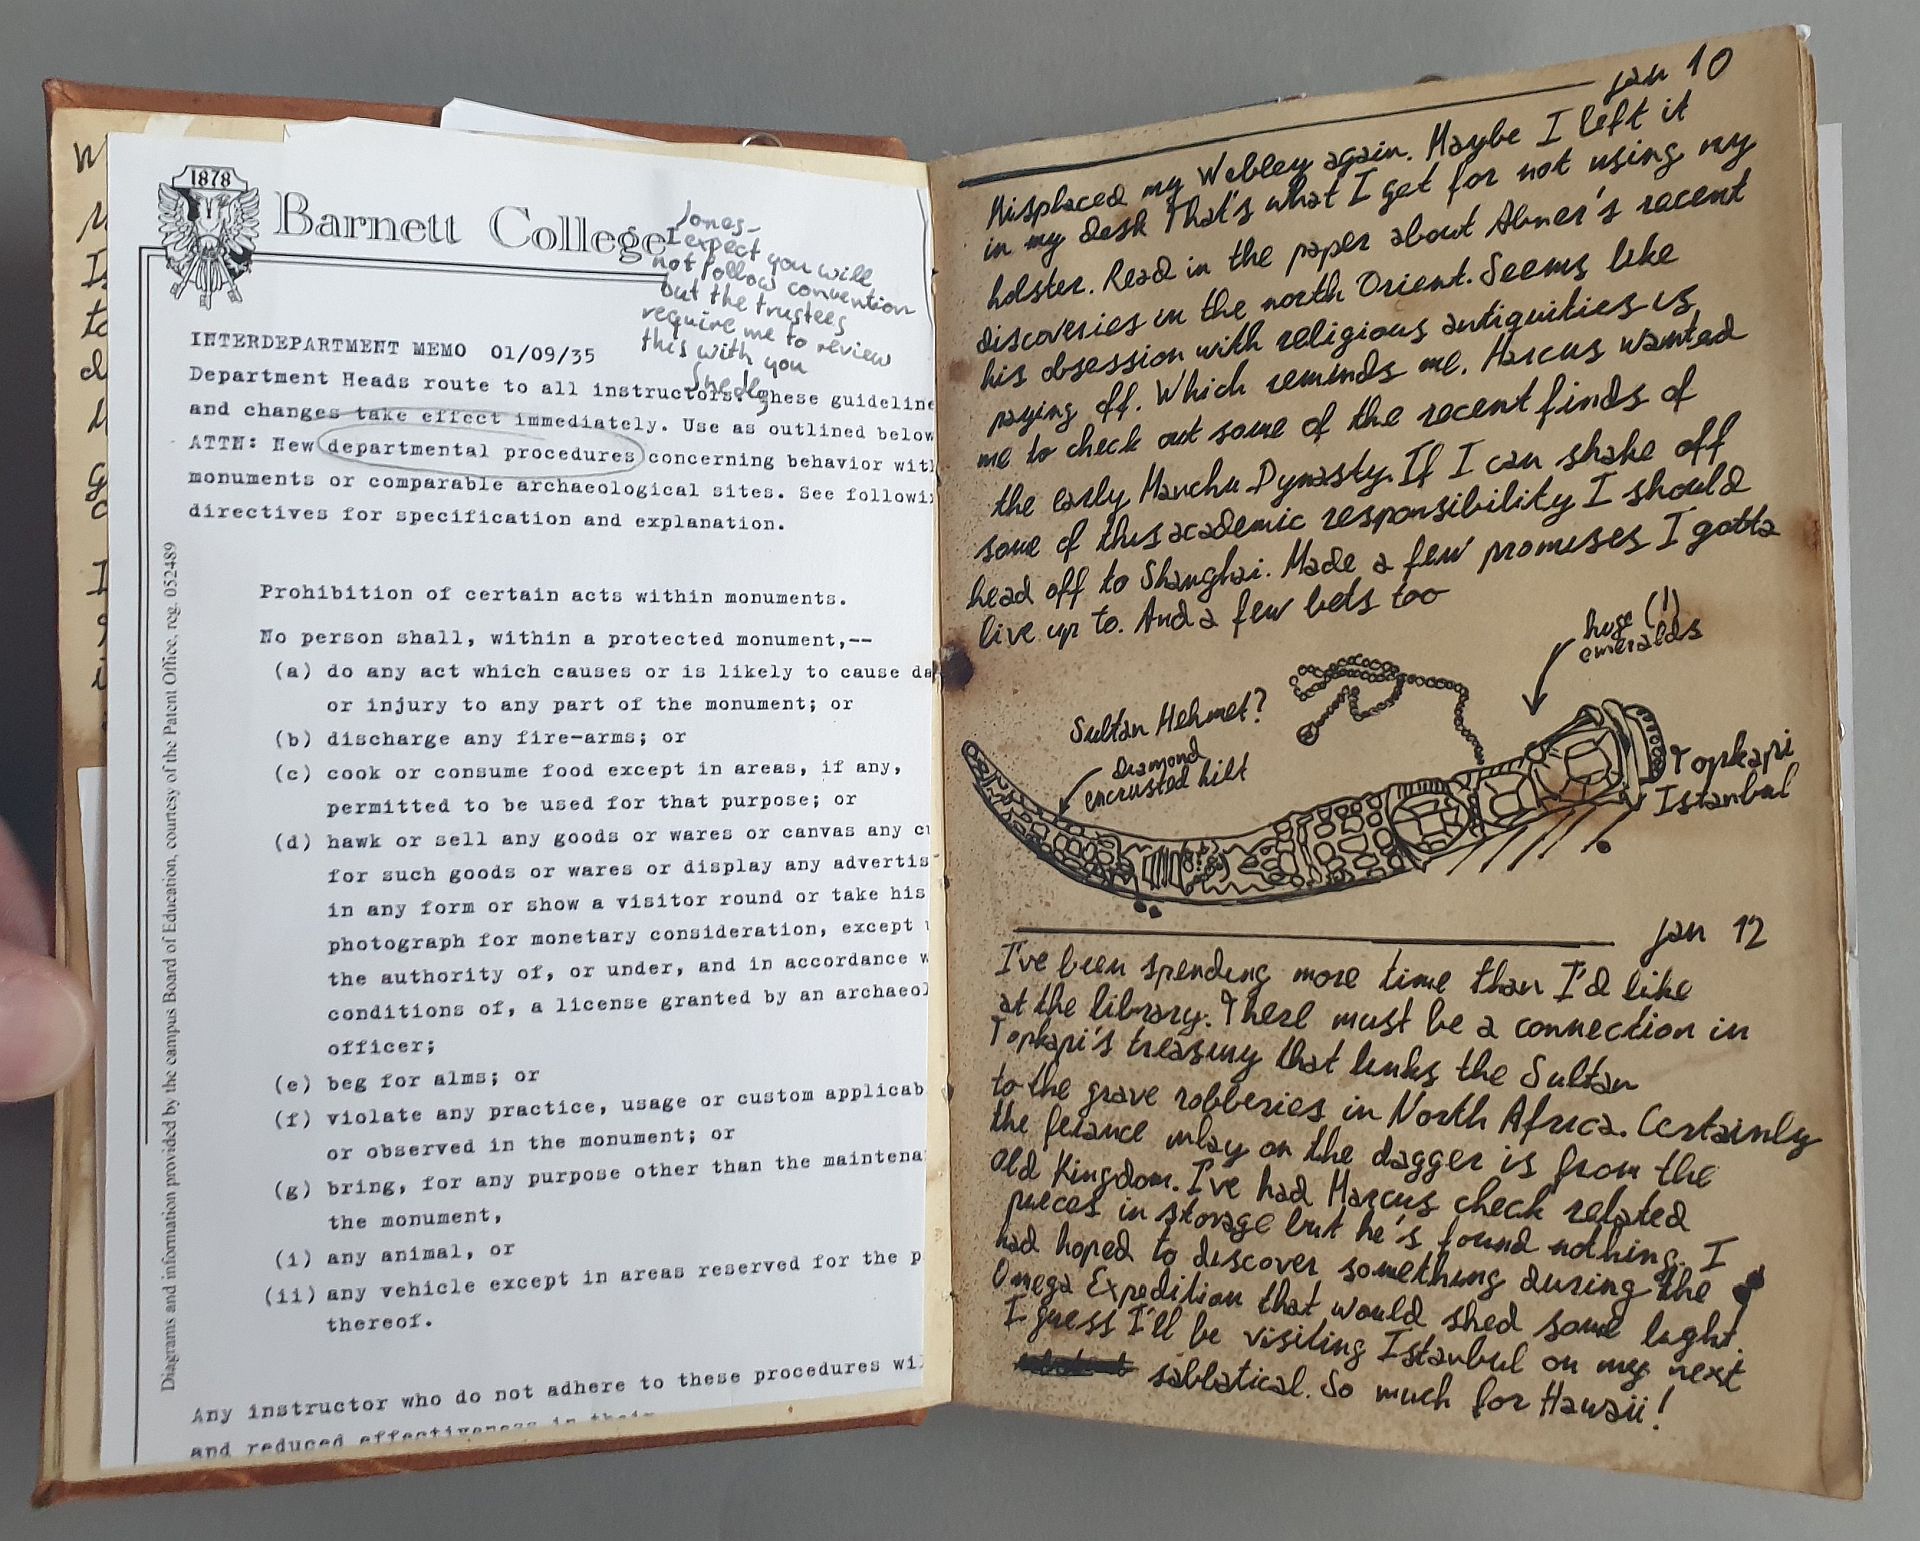 1878
Barnett College
Jones-
I expect you will
not follow convention
but the trustees
require me to review
this with you
INTERDEPARTMENT MEMO 01/09/35
Department Heads route to all instructors. These guideline
and changes take effect immediately. Use as outlined below
ATTN: New departmental procedures concerning behavior wit
monuments or comparable archaeological sites. See followi
directives for specification and explanation.
Prohibition of certain acts within monuments.
No person shall, within a protected monument,--
(a) do any act which causes or is likely to cause da
or injury to any part of the monument; or
(b) discharge any fire-arms; or
(c) cook or consume food except in areas, if any,
permitted to be used for that purpose; or
(d) hawk or sell any goods or wares or canvas any cu
for such goods or wares or display any advertis
in any form or show a visitor round or take his
photograph for monetary consideration, except
the authority of, or under, and in accordance w
conditions of, a license granted by an archaeol
officer;
(e) beg for alms; or
(f) violate any practice, usage or custom applicab
or observed in the monument; or
(g) bring, for any purpose other than the maintena
the monument,
(i) any animal, or
(ii) any vehicle except in areas reserved for the p
thereof.
Any instructor who do not adhere to these procedures wil
and reduced effectiveness in their
Diagrams and information provided by the campus Board of Education, courtesy of the Patent Office, reg. 052489
jan 10
Misplaced my Webley again. Maybe I left it
in my desk That's what I get for not using my
holster. Read in the paper about Abner's recent
discoveries in the north Orient. Seems like
his obsession with religious antiquities is
paying off. Which reminds me, Marcus wanted
me to check out some of the recent finds of
the early Manchu Dynasty. If I can shake off
some of this academic responsibility I should
head off to Shanghai. Made a few promises I gotta
live up to. And a few bets too
huge (!)
emeralds
Sultan Mehmet?
diamond
encrusted hilt
Topkapi
Istanbul
jan 12
I've been spending more time than I'd like
at the library. There must be a connection in
Topkapi's treasury that links the Sultan
to the grave robberies in North Africa. Certainly
the feiance inlay on the dagger is from the
Old Kingdom. I've had Marcus check related
pieces in storage but he's found nothing. I
had hoped to discover something during the
Omega Expedition that would shed some light.
I guess I'll be visiting Istanbul on my next
sabbatical. So much for Hawaii!